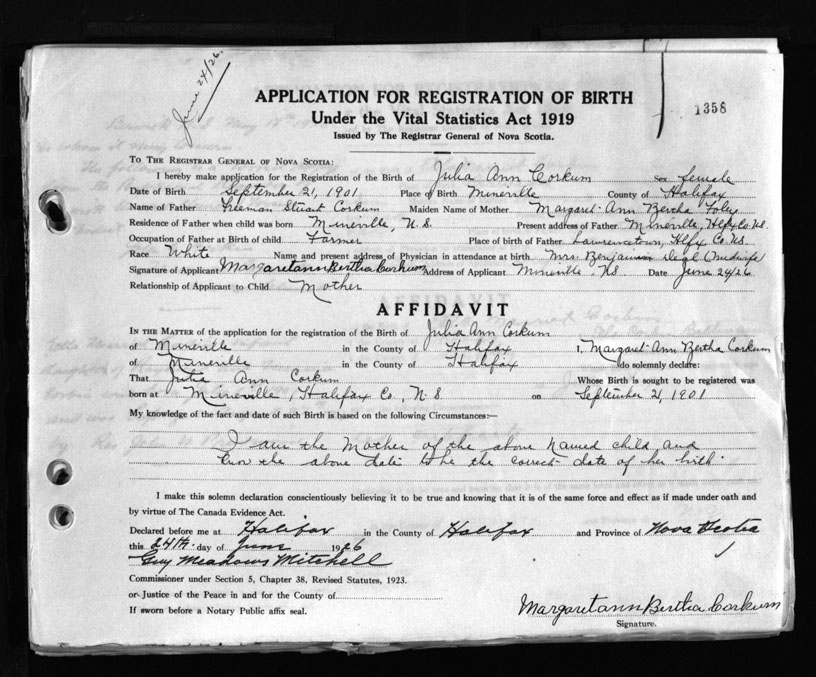 June 24/26.
APPLICATION FOR REGISTRATION OF BIRTH
1358
Under the Vital Statistics Act 1919
Issued by The Registrar General of Nova Scotia.
TO THE REGISTRAR GENERAL OF NOVA SCOTIA:
I hereby make application for the Registration of the Birth of Julia Ann Corkum Sex female
Date of Birth September 21, 1901 Place of Birth Mineville County of Halifax
Name of Father Freeman Stuart Corkum Maiden Name of Mother Margaret-Ann Bertha Foley
Residence of Father when child was born Mineville, N.S. Present address of Father Mineville, Hlfx Co N.S.
Occupation of Father at Birth of child Farmer Place of birth of Father Lawrencetown, Hlfx Co. N.S.
Race White Name and present address of Physician in attendance at birth Mrs. Benjamin
Signature of Applicant Margaretann Bertha Corkum Address of Applicant Mineville, NS Date June 24/26
Relationship of Applicant to Child Mother
AFFIDAVIT
IN THE MATTER of the application for the registration of the Birth of Julia Ann Corkum
of Mineville in the County of Halifax I, Margaret-Ann Bertha Corkum
of Mineville in the County of Halifax do solemnly declare:
That Julia Ann Corkum Whose Birth is sought to be registered was
born at Mineville, Halifax Co, N.S on September 21, 1901
My knowledge of the fact and date of such Birth is based on the following Circumstances:—
I am the Mother of the above named child and
the above date to be the correct date of her birth.
I make this solemn declaration conscientiously believing it to be true and knowing that it is of the same force and effect as if made under oath and
by virtue of The Canada Evidence Act.
Declared before me at Halifax in the County of Halifax and Province of Nova Scotia
this 24th. day of June 1926
Guy Meadows Mitchell
Commissioner under Section 5, Chapter 38, Revised Statutes, 1923.
or Justice of the Peace in and for the County of
If sworn before a Notary Public affix seal.
Margaretann Bertha Corkum
Signature.